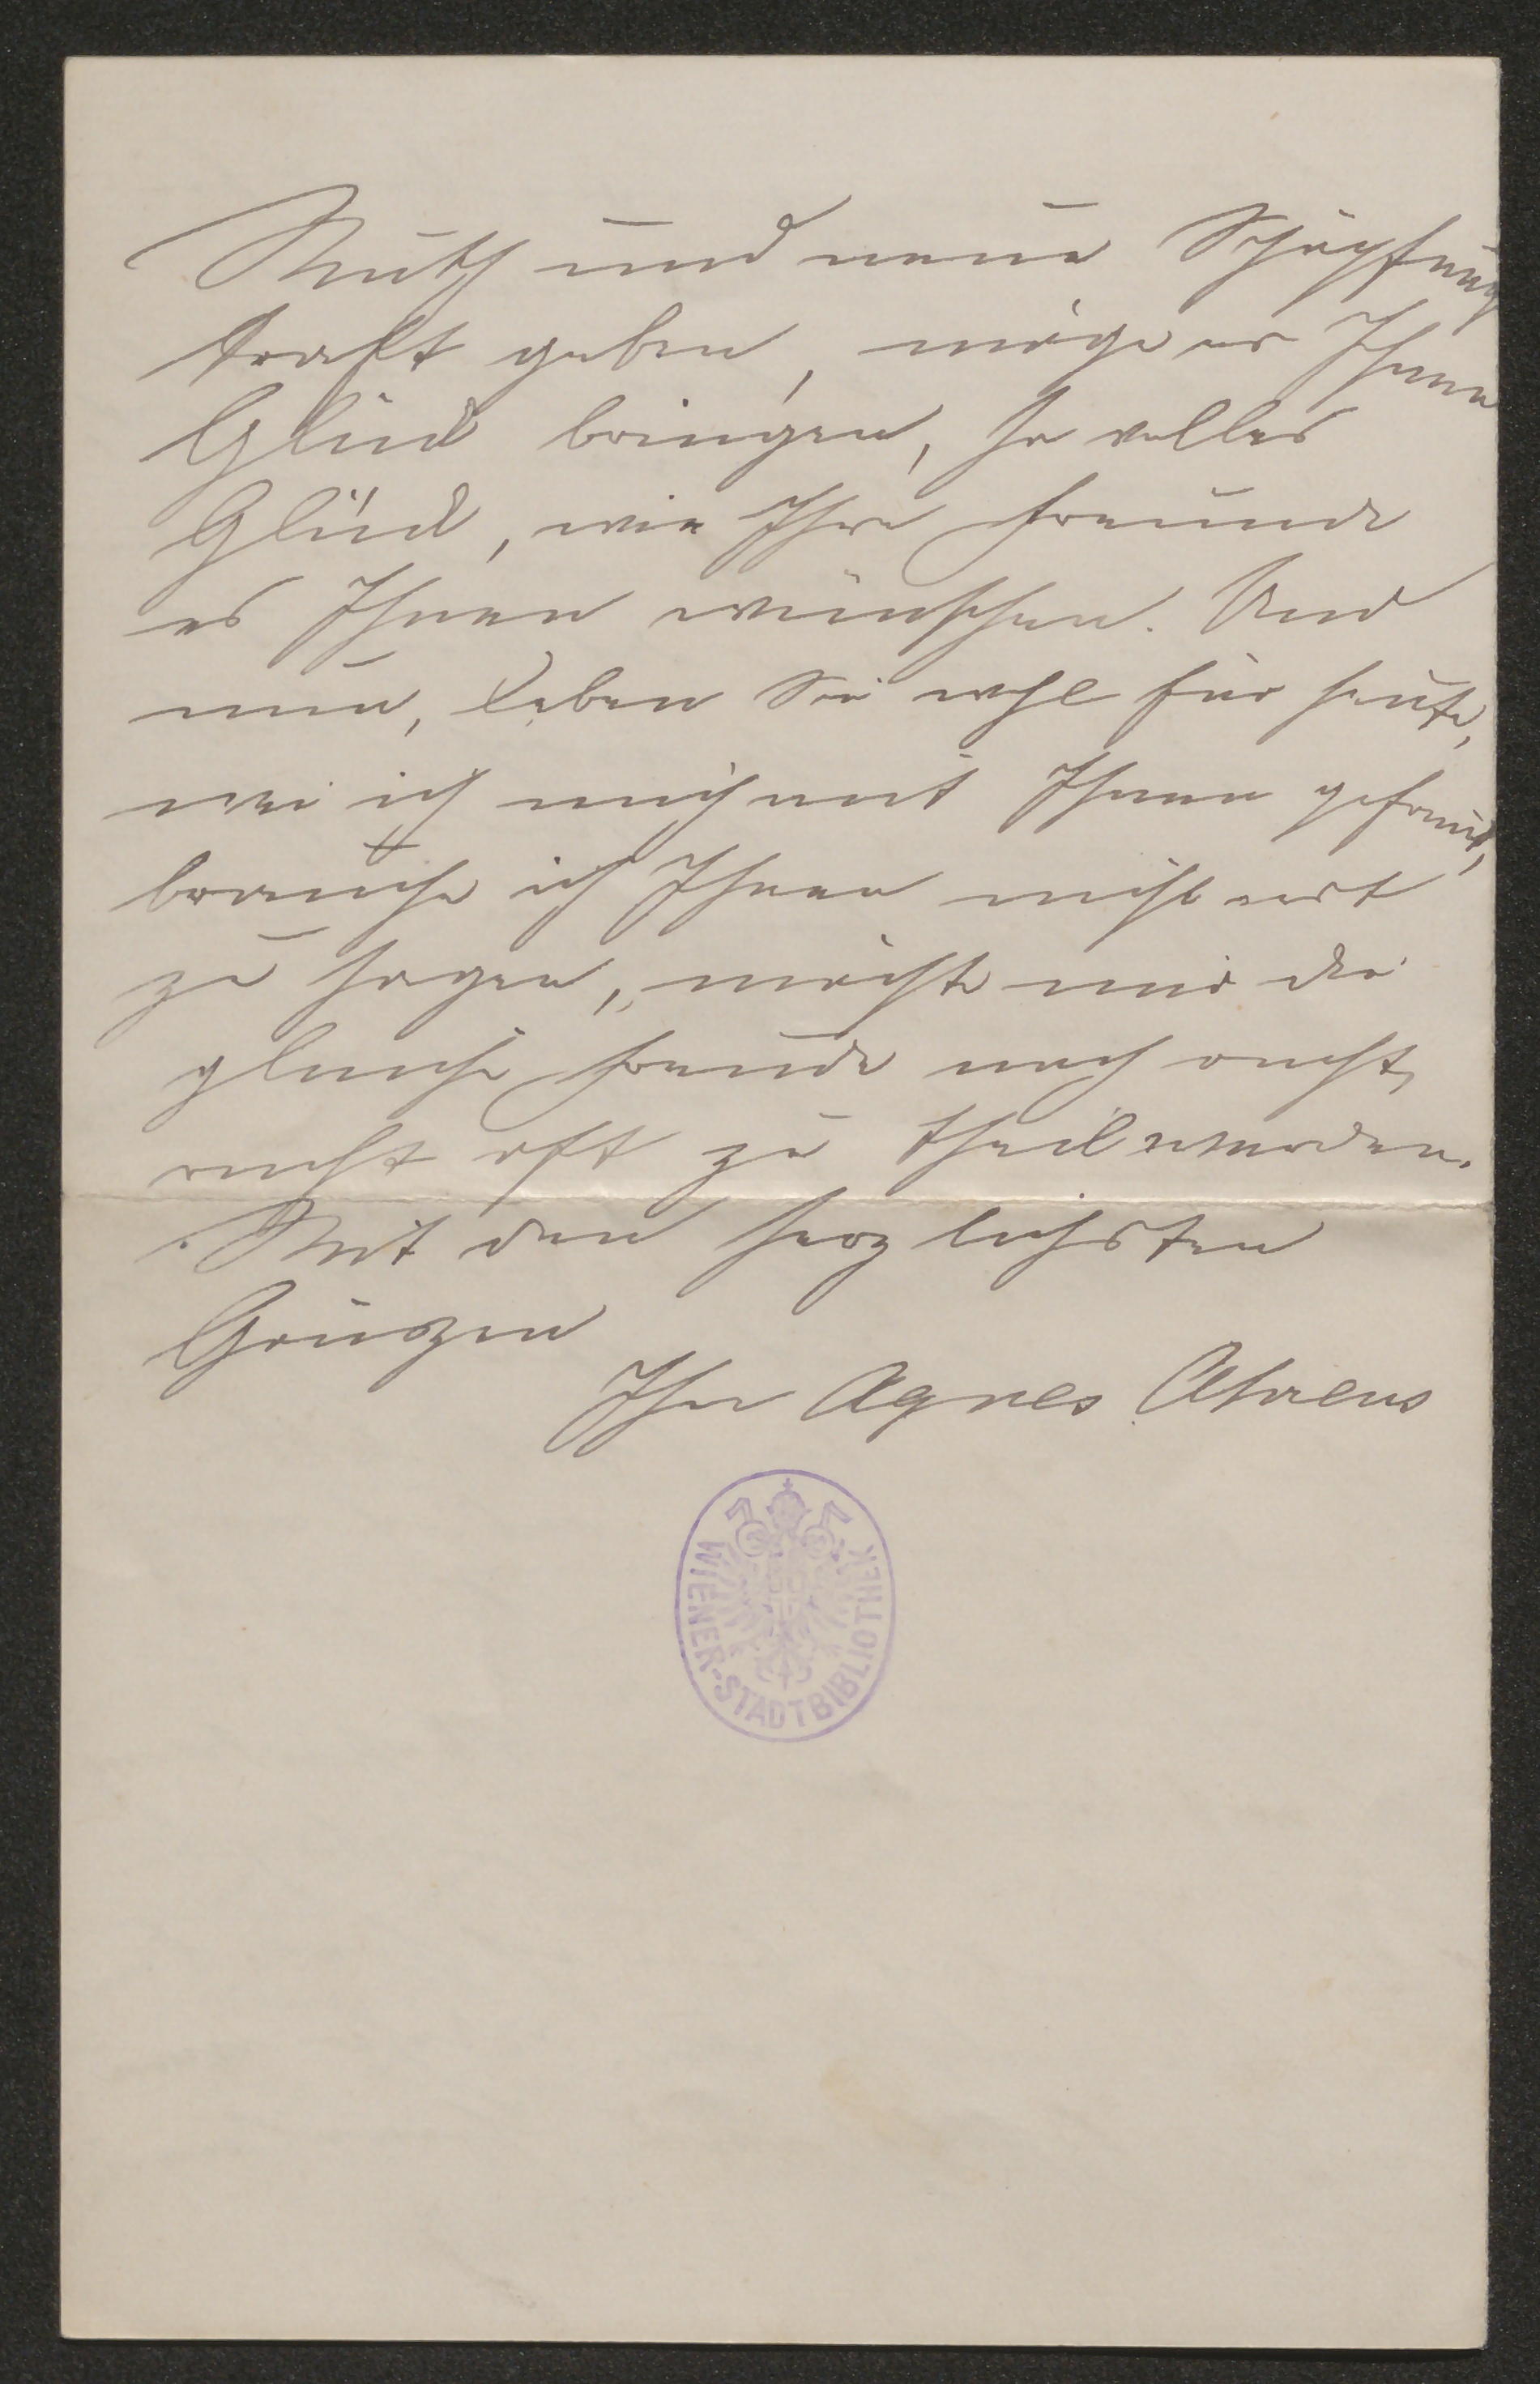 Muth und neue Schöpfung
kraft geben, möge er Ihnen
Glück bringen, so volles
Glück, wie Ihre Freunde
es Ihnen wünschen. Und
nun, leben Sie wohl für heute,
wie ich mich mit Ihnen gefreut,
brauche ich Ihnen nicht erst
zu sagen, möchte mir die
gleiche Freude noch recht,
recht oft zu theil werden.
Mit den herzlichsten
Grüszen
Ihre Agnes Ahrens
WIENER-STADTBIBLIOTHEK